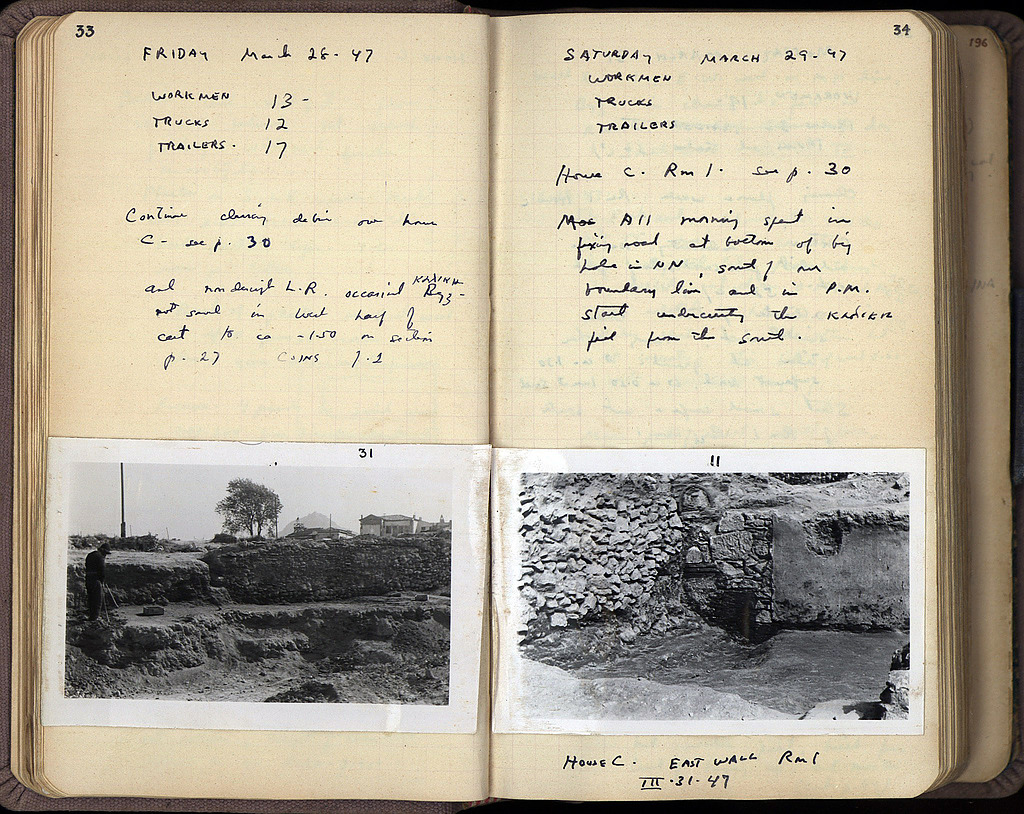 33
FRIDAY March 28-47
WORKMEN 13-
TRUCKS 12
TRAILERS. 17
Continue clearing debris over house
C- see p. 30
and L.R. occasional
not sand in West half of
cart to ca -1.50 on section
p. 27 COINS 1-2
31
34
SATURDAY MARCH 29-47
WORKMEN
TRUCKS
TRAILERS
House C. Rm 1. see p. 30
All morning spent in
fixing road at bottom of big
hole in NN, south of our
boundary line and in P.M.
start undercutting the
from the south.
11
HOUSE C. EAST WALL Rm 1
III-31-47
196